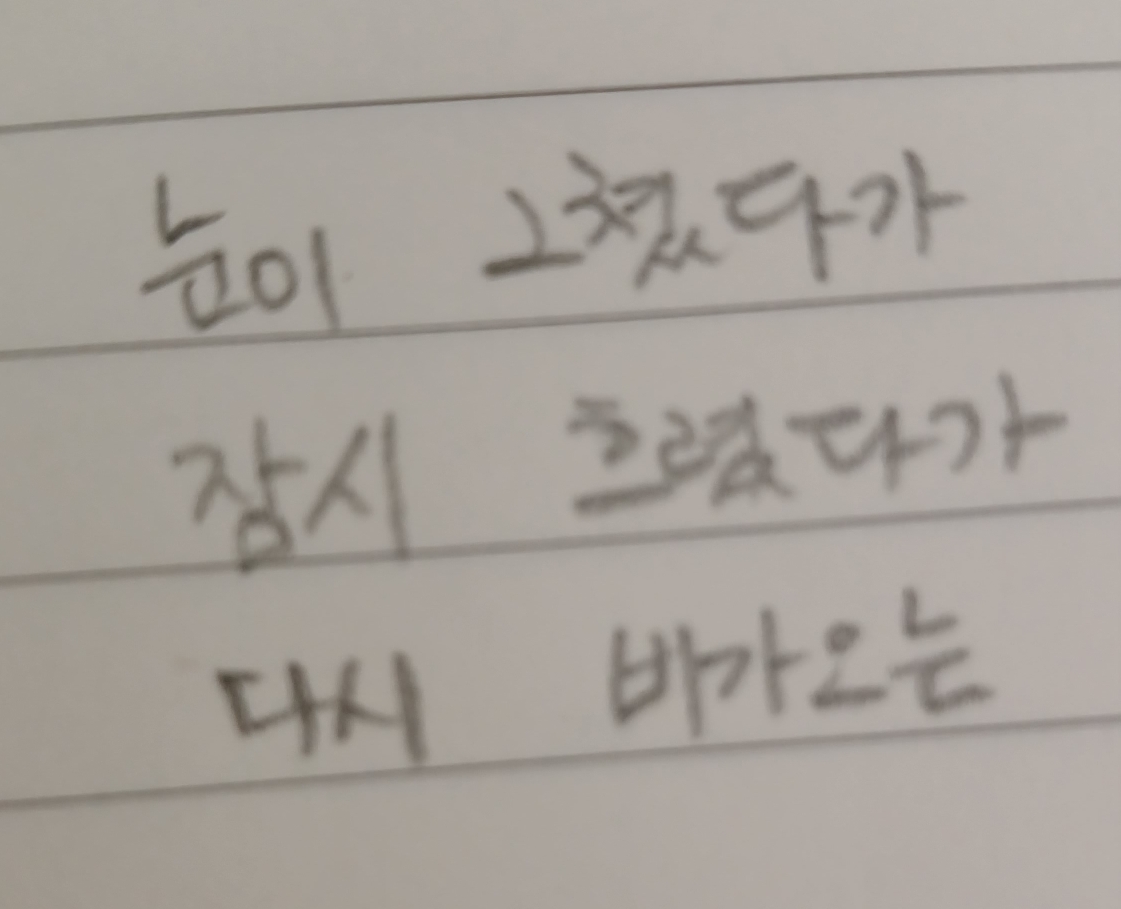 눈이 그쳤다가
잠시 흐렸다가
다시 바가오는